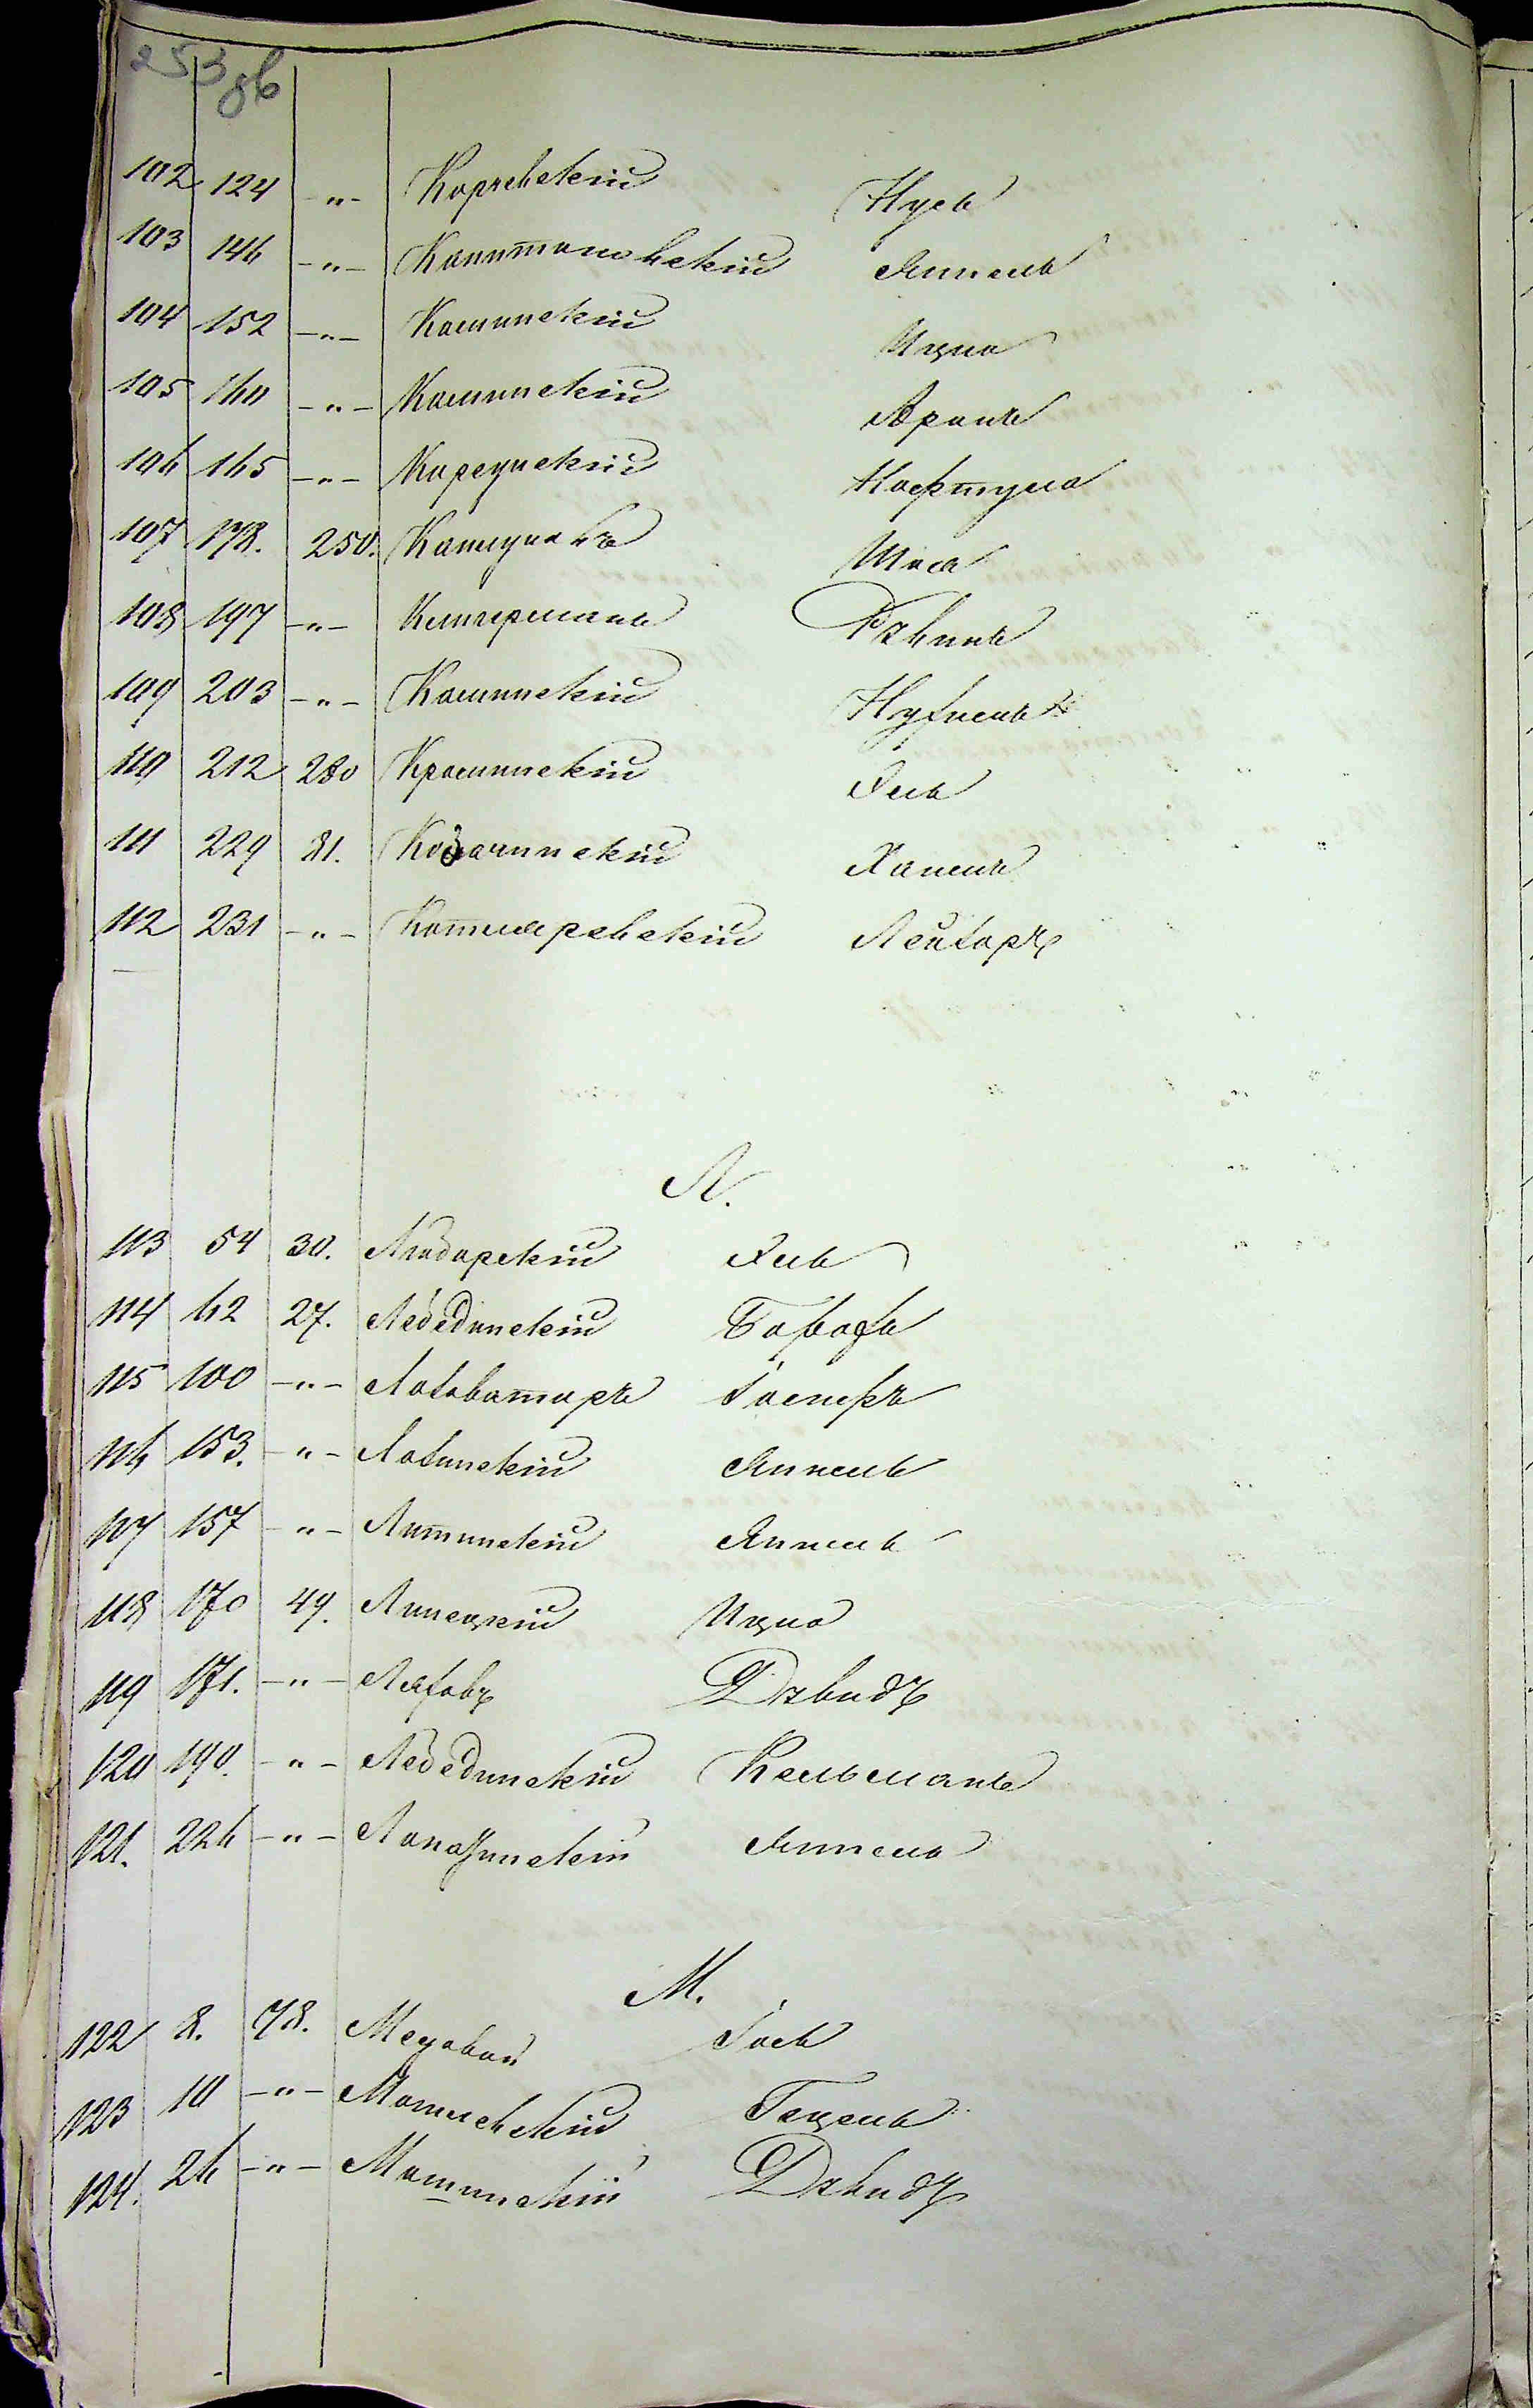 253 об
102 124 -"- Корчевскій Нусь
103 146 -"- Капитановскій Янкель
104 152 -"- Каминскій Ицко
105 160 -"- Каминскій Аронъ
106 165 -"- Корсунскій Нафтула
107 178. 250. Кацкулевъ
108 197 -"- Кельнерманъ
109 203 -"- Каминскій Нухимъ
110 212 280 Крамынскій Ель
111 229 81. Козачинскій Хаимъ
112 231 -"- Котляревскій Лейзоръ
Л.
113 54 30. Людарскій Ель
114 62 27. Лебединскій Борохъ
115 100 -"- Лохватаръ Іосифъ
116 153. -"- Лозинскій Янкель
117 157 -"- Литинскій Янкель
118 170 49. Липецкій Ицко
119 171. -"- Ляховъ Давидъ
120 190. -"- Лебединскій Кельманъ
121. 226 -"- Лапатинскій Янкель
М.
122 8. 78. Медовой Іось
123 10 -"- Макаревскій Гецель
124. 26 -"- Мотинскій Давидъ